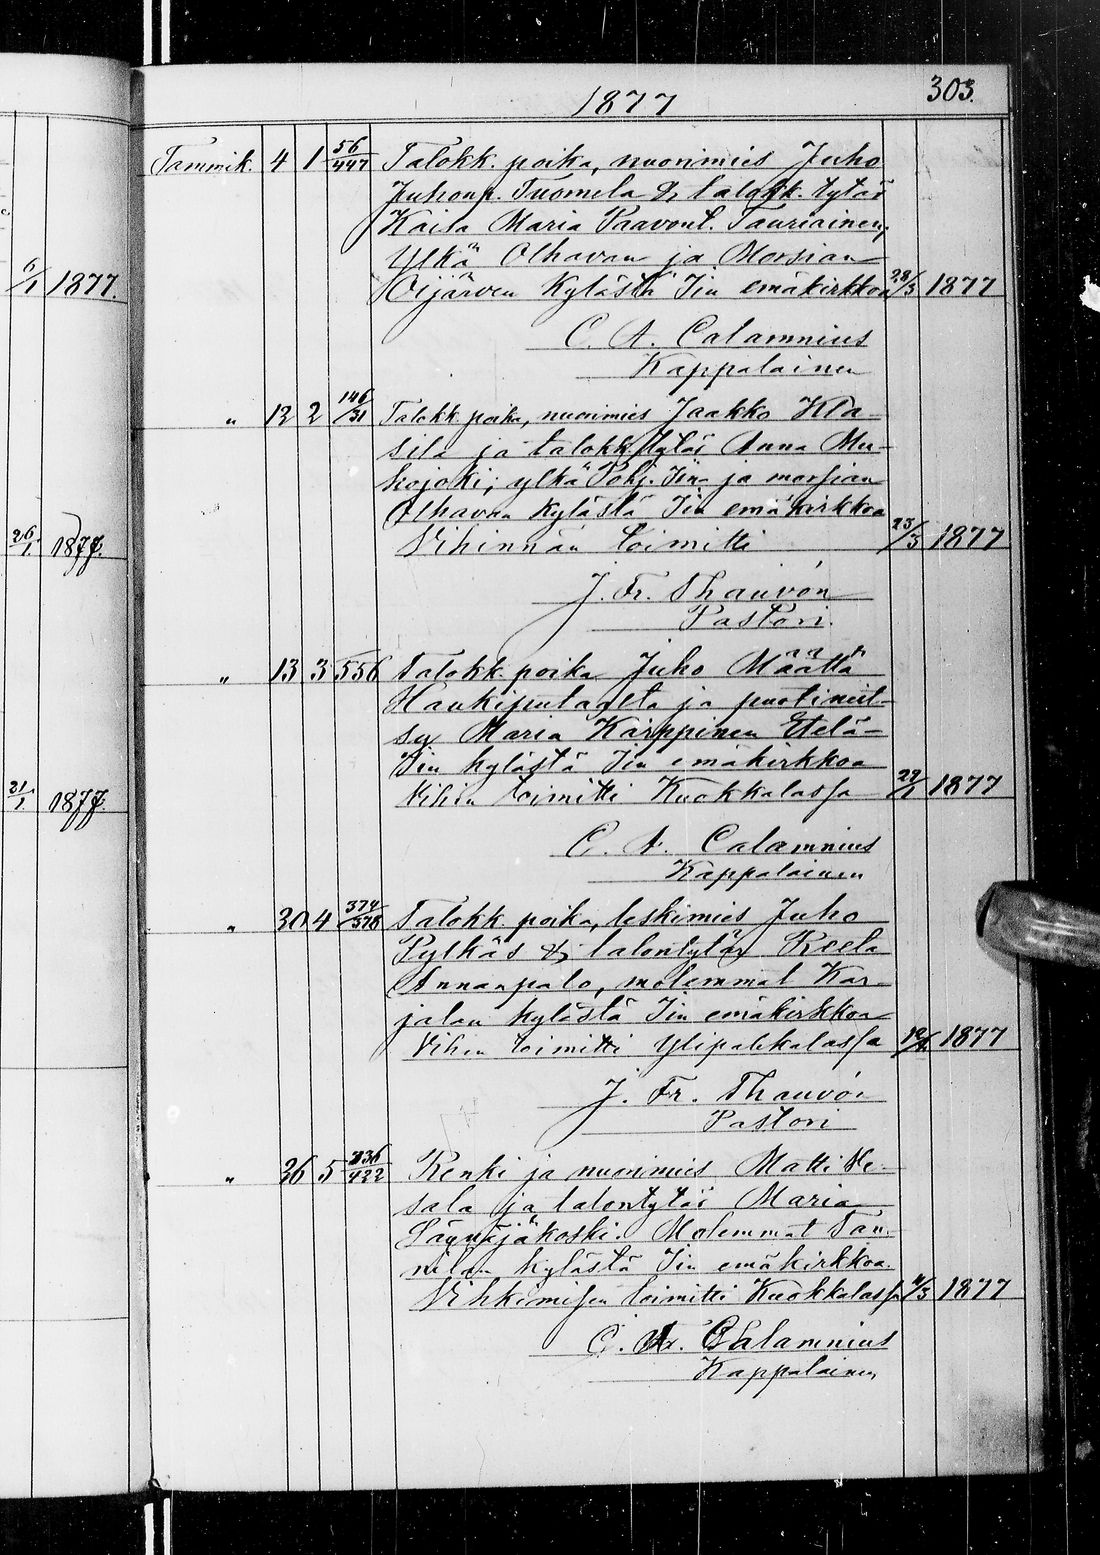 303.
1877
Tammik. 4 1 56/447 Talokk. poika, nuorimies Juho
Juhonp. Tuomela & talokk. tytär
Kaisa Maria Paavont. Tauriainen,
Ylkä Olhavan ja Morsian
6/1 1877. Oijärven kylästä Iin emäkirkkoa 28/3 1877
C. A. Calamnius
Kappalainen
" 12 2 146/31 Talokk. poika, nuorimies Jaakko Kla-
sila ja talokk. tytär Anna Mu-
hojoki; ylkä Pohj. Iin ja morsian
Olhavan kylästä Iin emäkirkkoa
26/1 1877. Vihinnän toimitti 25/3 1877
J. Fr. Thauvón
Pastori.
" 13 3 556 Talokk. poika Juho Määttä
Haukiputaalta ja puotineit-
sy Maria Karppinen Etelä-
Iin kylästä Iin emäkirkkoa
21/1 1877. Vihin toimitti Kuokkalassa 1877
C. A. Calamnius
Kappalainen
" 30 4 374/378 Talokk. poika, leskimies Juho
Pytkäs & talontytär Reeta
Annanpalo, molemmat Kar-
jalan kylästä Iin emäkirkkoa
Vihin toimitti Ylipahkalassa 1877
J. Fr. Thauvón
Pastori
" 36 5 436/422 Renki ja nuorimies Matti Ve-
sala ja talontytär Maria
Säynäjäkoski. Molemmat Tan-
nilan kylästä Iin emäkirkkoa.
Vihkimisen toimitti Kuokkalassa 4/3 1877
C. A. Calamnius
Kappalainen